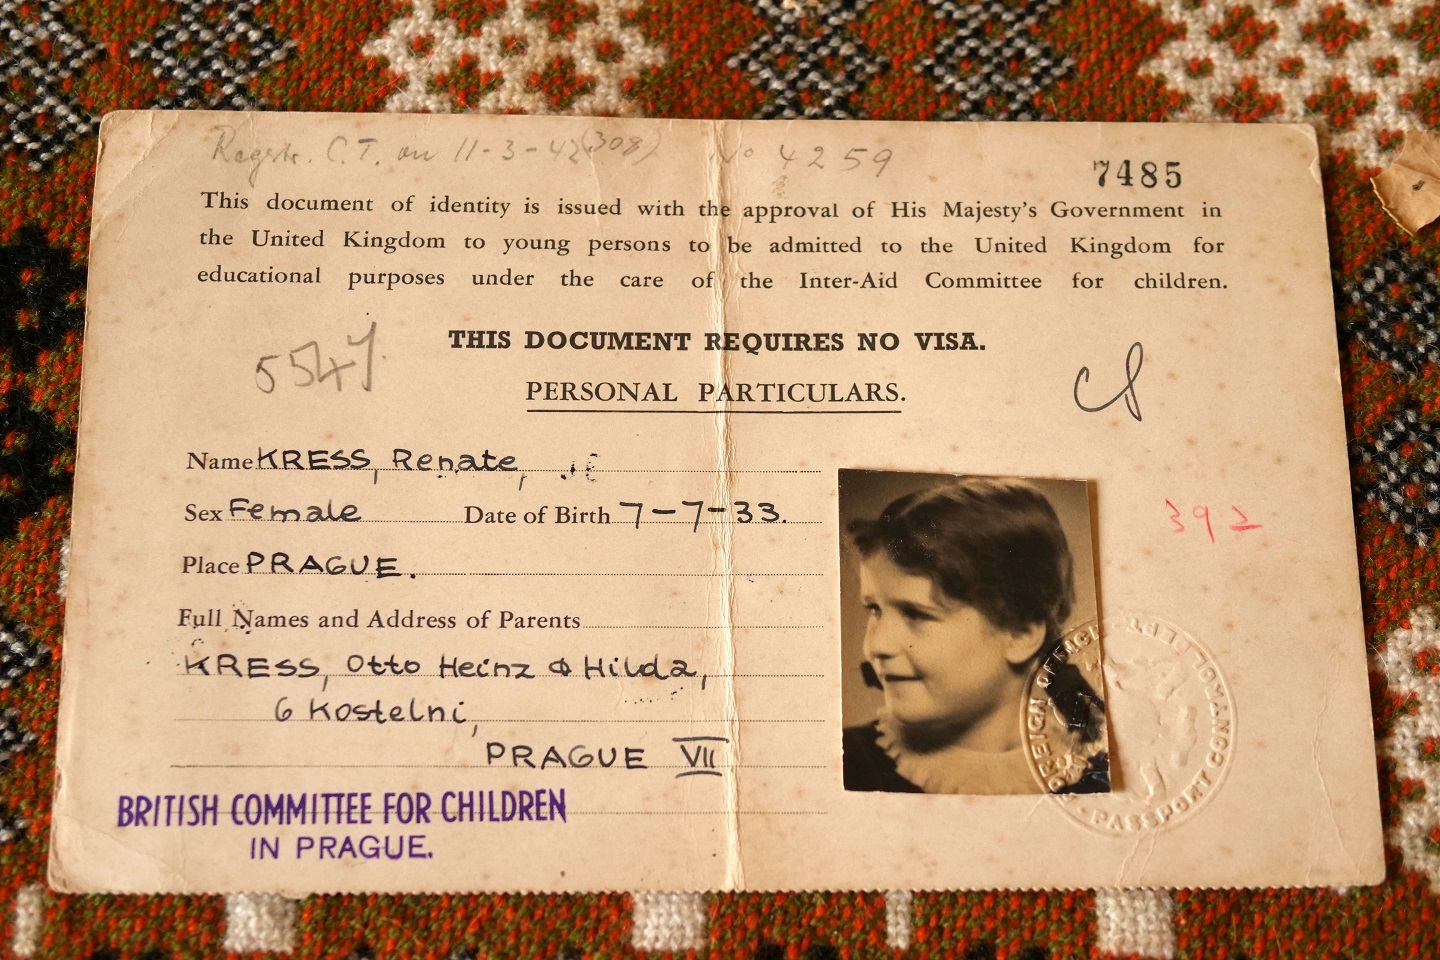 Regstr. C.T. on 11-3-42 (308) No 4259
7485
This document of identity is issued with the approval of His Majesty's Government in
the United Kingdom to young persons to be admitted to the United Kingdom for
educational purposes under the care of the Inter-Aid Committee for children.
THIS DOCUMENT REQUIRES NO VISA.
5547
PERSONAL PARTICULARS.
Name KRESS, Renate,
Sex Female Date of Birth 7-7-33.
392
Place PRAGUE.
Full Names and Address of Parents
KRESS, Otto Heinz & Hilda,
6 Kostelni,
PRAGUE VII
BRITISH COMMITTEE FOR CHILDREN
IN PRAGUE.
FOREIGN OFFICE
PASSPORT CONTROL DEPT